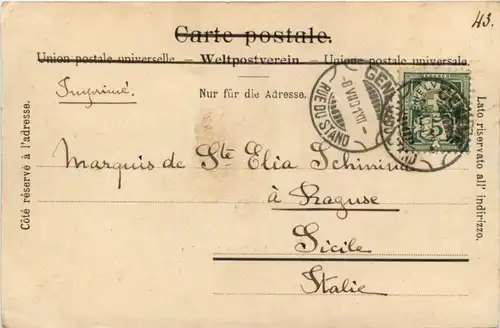 43.
Carte postale.
Union postale universelle. — Weltpostverein. — Unione postale universale.
Imprimé.
Nur für die Adresse.
GENÈVE
RUE DU STAND
HELVETIA
5
Côté réservé à l'adresse.
Lato riservato all' indirizzo.
Marquis de Ste Elia Schinina
à Raguse
Sicile
Italie